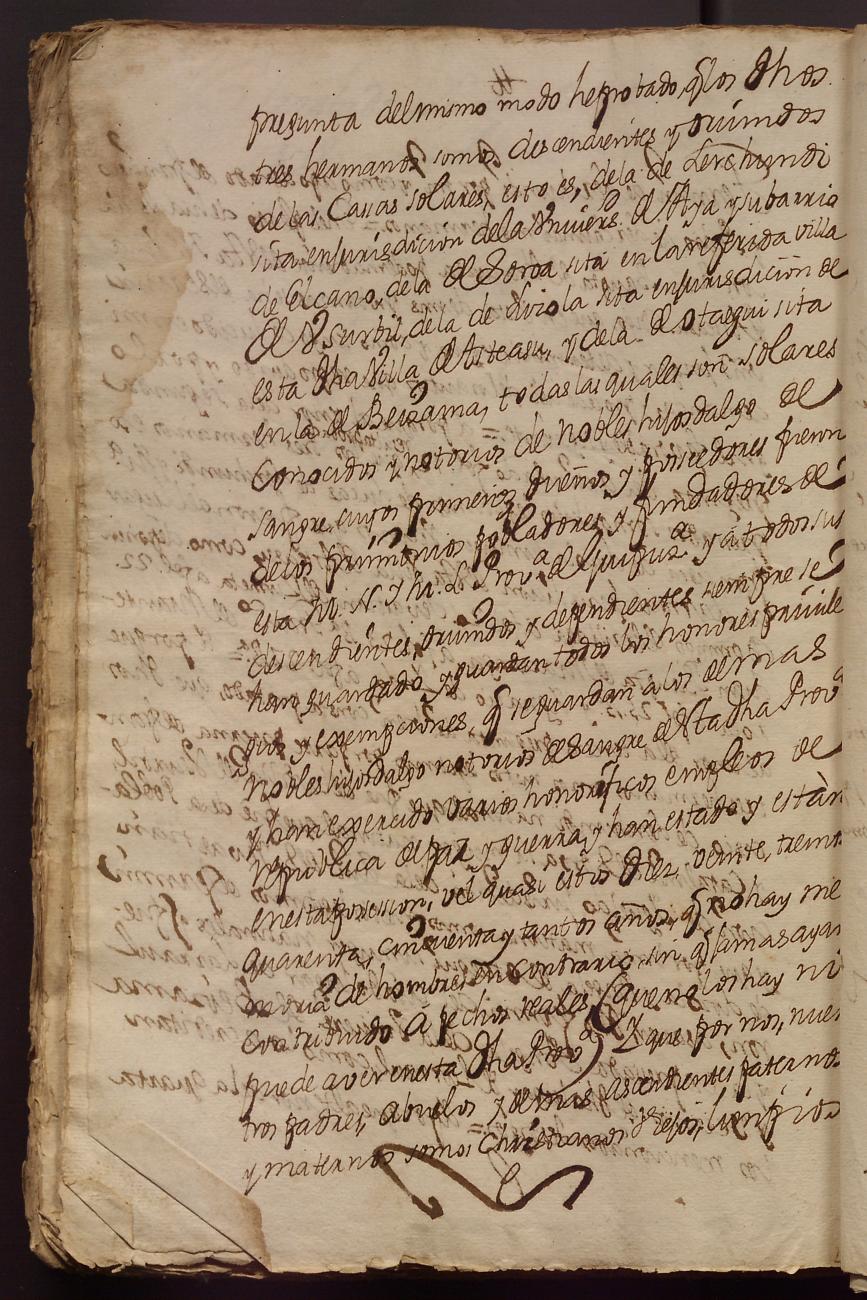 pregunta del mismo modo he probado, q̃ los dhos
tres hermanos somos descendientes y oriundos
de las Cassas solares, esto es, de la de Lerchundi
sita en jurisdicion de la Vniversd. de Aya y su barrio
de Elcano, de la de Soroa sita en la referida villa
de Vsurbil, de la de Liviola sita en jurisdiciõn de
esta dha Villa de Asteasu, y de la de Otaegui sita
en la de Beizama, todas las quales son solares
conocidos y notorios de nobles hijosdalgo de
sangre, cuyos primeros dueños y poseedores fueron
de los primeros pobladores y fundadores de
esta M. N. y M. L. Prova de Guipuza y à todos sus
descendientes, oriundos, y dependientes siempre se
han guardado y guardan todos los honores privile
gios y exempciones, q̃ se guardan à los demas
nobles hijosdalgo notorios de sangre de esta dha Prova
y han exercido varios honorificos empleos de
republica de paz y guerra, y han estado y estàn
en esta possession, vel quasi estos diez, veinte, treinta
quarenta, cinquenta y tantos años, q̃ no hay me
moria de hombres en contrario, sin q̃ jamas ayan
contribuido à pechos reales (que ne los hay ni
puede aver en esta dha Prova) Y que por nos, nues
tros padres, abuelos y demas ascendientes paternos
y maternos somos Christianos viejos, limpios